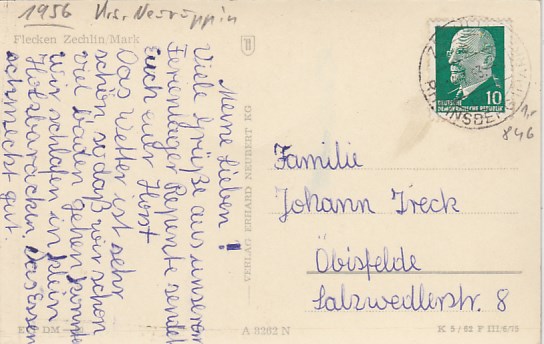 1956 Krs. Neuruppin
Flecken Zechlin/Mark
Meine Lieben!
Viele Grüße aus unserem
Ferienlager Repente sendet
Euch euer Horst
Das Wetter ist sehr
schön sodaß wir schon
viel baden gehen konnte
wir schlafen in klein
Holzbaracken. Das Essen
schmeckt gut.
EVP DM
VERLAG ERHARD NEUBERT KG
A 8262 N
K 5/62 F III/6/15
10
DEUTSCHE
DEMOKRATISCHE REPUBLIK
RHEINSBERG (MARK)
1,-
846
Familie
Johann Treck
Öbisfelde
Salzwedlerstr. 8